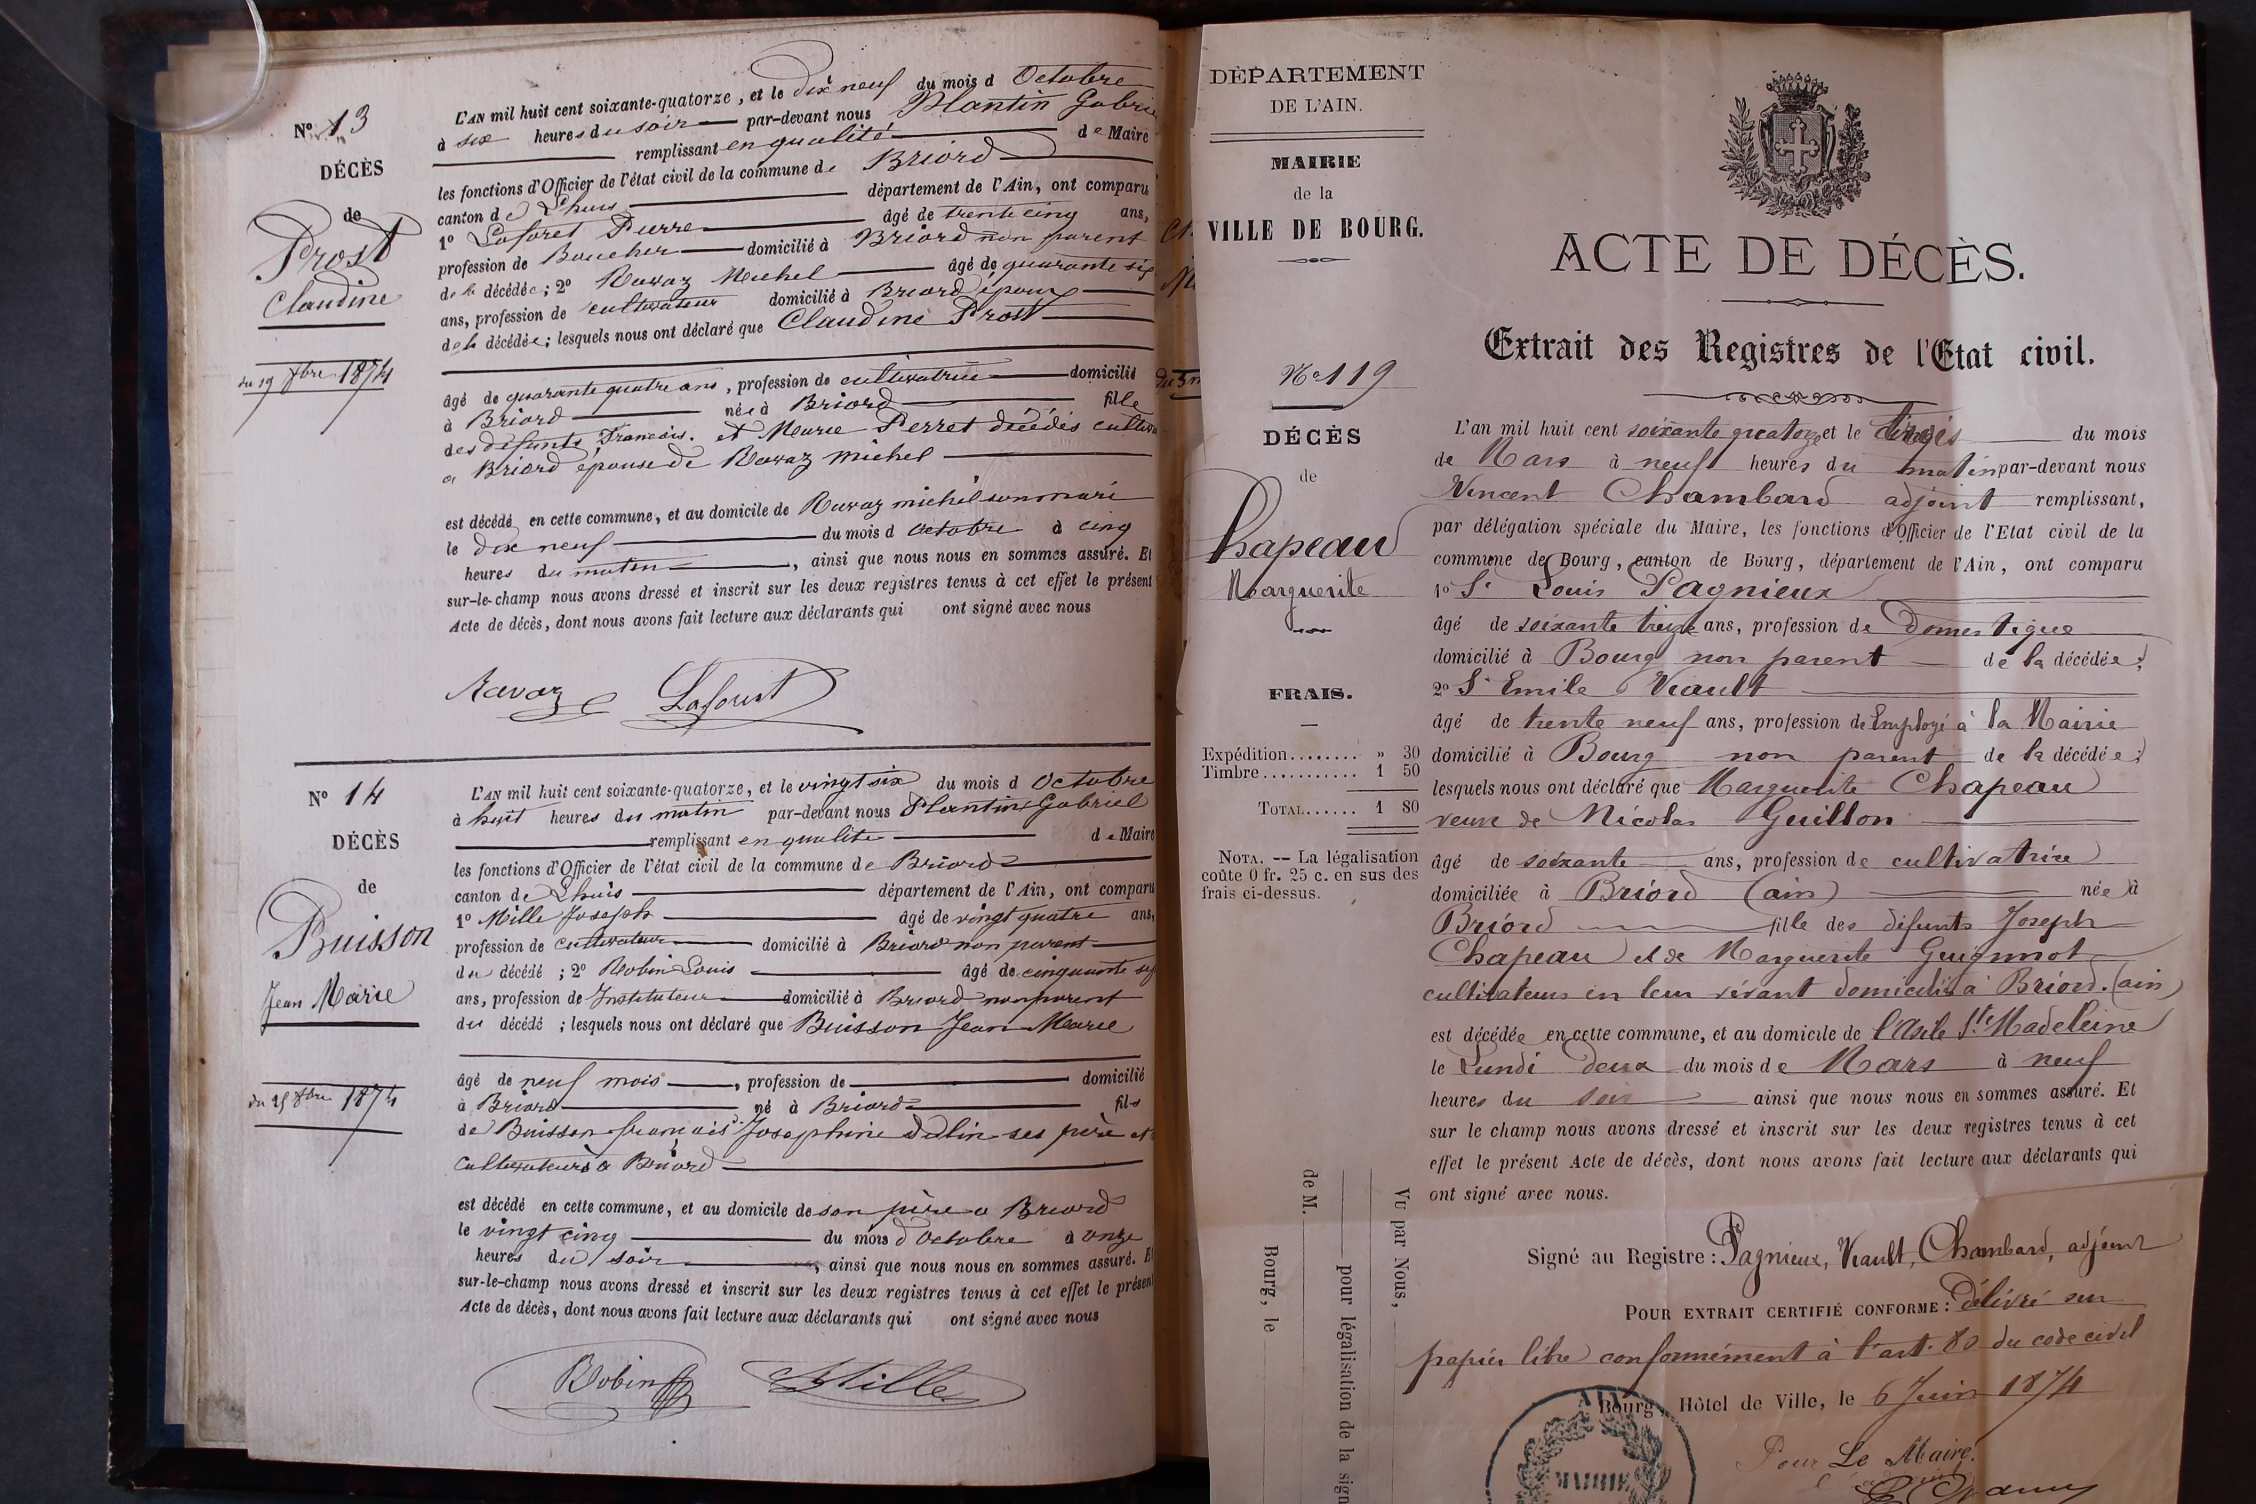 N° 13
DÉCÈS
de
Prost
Claudine
du 19 8bre 1874
L'AN mil huit cent soixante-quatorze, et le dix neuf du mois d Octobre
à six heures du soir par-devant nous Plantin Gabrie
remplissant en qualité de Maire
les fonctions d'Officier de l'état civil de la commune de Briord
canton de Lhuis département de l'Ain, ont comparu
1° Laforet Pierre âgé de trente cinq ans,
profession de Boucher domicilié à Briord non parent
de la décédée; 2° Ravaz Michel âgé de quarante six
ans, profession de cultivateur domicilié à Briord époux
de la décédée; lesquels nous ont déclaré que Claudine Prost
âgé de quarante quatre ans, profession de cultivatrice domicilié
à Briord née à Briord fille
des défunts François et Marie Perret décédés cultiva
a Briord épouse de Ravaz michel
est décédé en cette commune, et au domicile de Ravaz michel son mari
le dix neuf du mois d octobre à cinq
heures du matin, ainsi que nous nous en sommes assuré. Et
sur-le-champ nous avons dressé et inscrit sur les deux registres tenus à cet effet le présent
Acte de décès, dont nous avons fait lecture aux déclarants qui ont signé avec nous
Ravaz Laforest
N° 14
DÉCÈS
de
Buisson
Jean Marie
du 25 8bre 1874
L'AN mil huit cent soixante-quatorze, et le vingt six du mois d Octobre
à huit heures du matin par-devant nous Plantin Gabriel
remplissant en qualité de Maire
les fonctions d'Officier de l'état civil de la commune de Briord
canton de Lhuis département de l'Ain, ont comparu
1° Mille Joseph âgé de vingt quatre ans,
profession de cultivateur domicilié à Briord non parent
du décédé; 2° Robin Louis âgé de cinquante sep
ans, profession de Instituteur domicilié à Briord non parent
du décédé; lesquels nous ont déclaré que Buisson Jean Marie
âgé de neuf mois, profession de domicilié
à Briord né à Briord fils
de Buisson françois Josephine ses père et
cultivateurs a Briord
est décédé en cette commune, et au domicile de son père a Briord
le vingt cinq du mois d'octobre à onze
heures du soir, ainsi que nous nous en sommes assuré. Et
sur-le-champ nous avons dressé et inscrit sur les deux registres tenus à cet effet le présent
Acte de décès, dont nous avons fait lecture aux déclarants qui ont signé avec nous
Robin Mille
DÉPARTEMENT
DE L'AIN.
MAIRIE
de la
VILLE DE BOURG.
N° 119
DÉCÈS
de
Chapeau
Marguerite
FRAIS.
Expédition........ » 30
Timbre........... 1 50
TOTAL...... 1 80
NOTA. -- La légalisation
coûte 0 fr. 25 c. en sus des
frais ci-dessus.
VU par Nous,
pour légalisation de la sign
de M.
Bourg, le
ACTE DE DÉCÈS.
Extrait des Registres de l'Etat civil.
L'an mil huit cent soixante quatorze et le trois du mois
de Mars à neuf heures du matin par-devant nous
Vincent Chambard adjoint remplissant,
par délégation spéciale du Maire, les fonctions d'Officier de l'Etat civil de la
commune de Bourg, canton de Bourg, département de l'Ain, ont comparu
1° Sr Louis Pagnieux
âgé de soixante treize ans, profession de Domestique
domicilié à Bourg non parent de la décédée;
2° Sr Emile Viault
âgé de trente neuf ans, profession de Employé à la Mairie
domicilié à Bourg non parent de la décédée;
lesquels nous ont déclaré que Marguerite Chapeau
veuve de Nicolas Guillon
âgé de soixante ans, profession de cultivatrice
domiciliée à Briord (ain) née à
Briord fille des défunts Joseph
Chapeau et de Marguerite Guignot
cultivateurs en leur vivant domiciliés à Briord. (ain)
est décédée en cette commune, et au domicile de l'Asile Ste Madeleine
le Lundi deux du mois de Mars à neuf
heures du soir ainsi que nous nous en sommes assuré. Et
sur le champ nous avons dressé et inscrit sur les deux registres tenus à cet
effet le présent Acte de décès, dont nous avons fait lecture aux déclarants qui
ont signé avec nous.
Signé au Registre: Pagnieux, Viault, Chambard, adjoint
POUR EXTRAIT CERTIFIÉ CONFORME: Délivré sur
papier libre conformément à l'art. 80 du code civil
Bourg, Hôtel de Ville, le 6 Juin 1874
Pour Le Maire.
AIN
MAIRIE